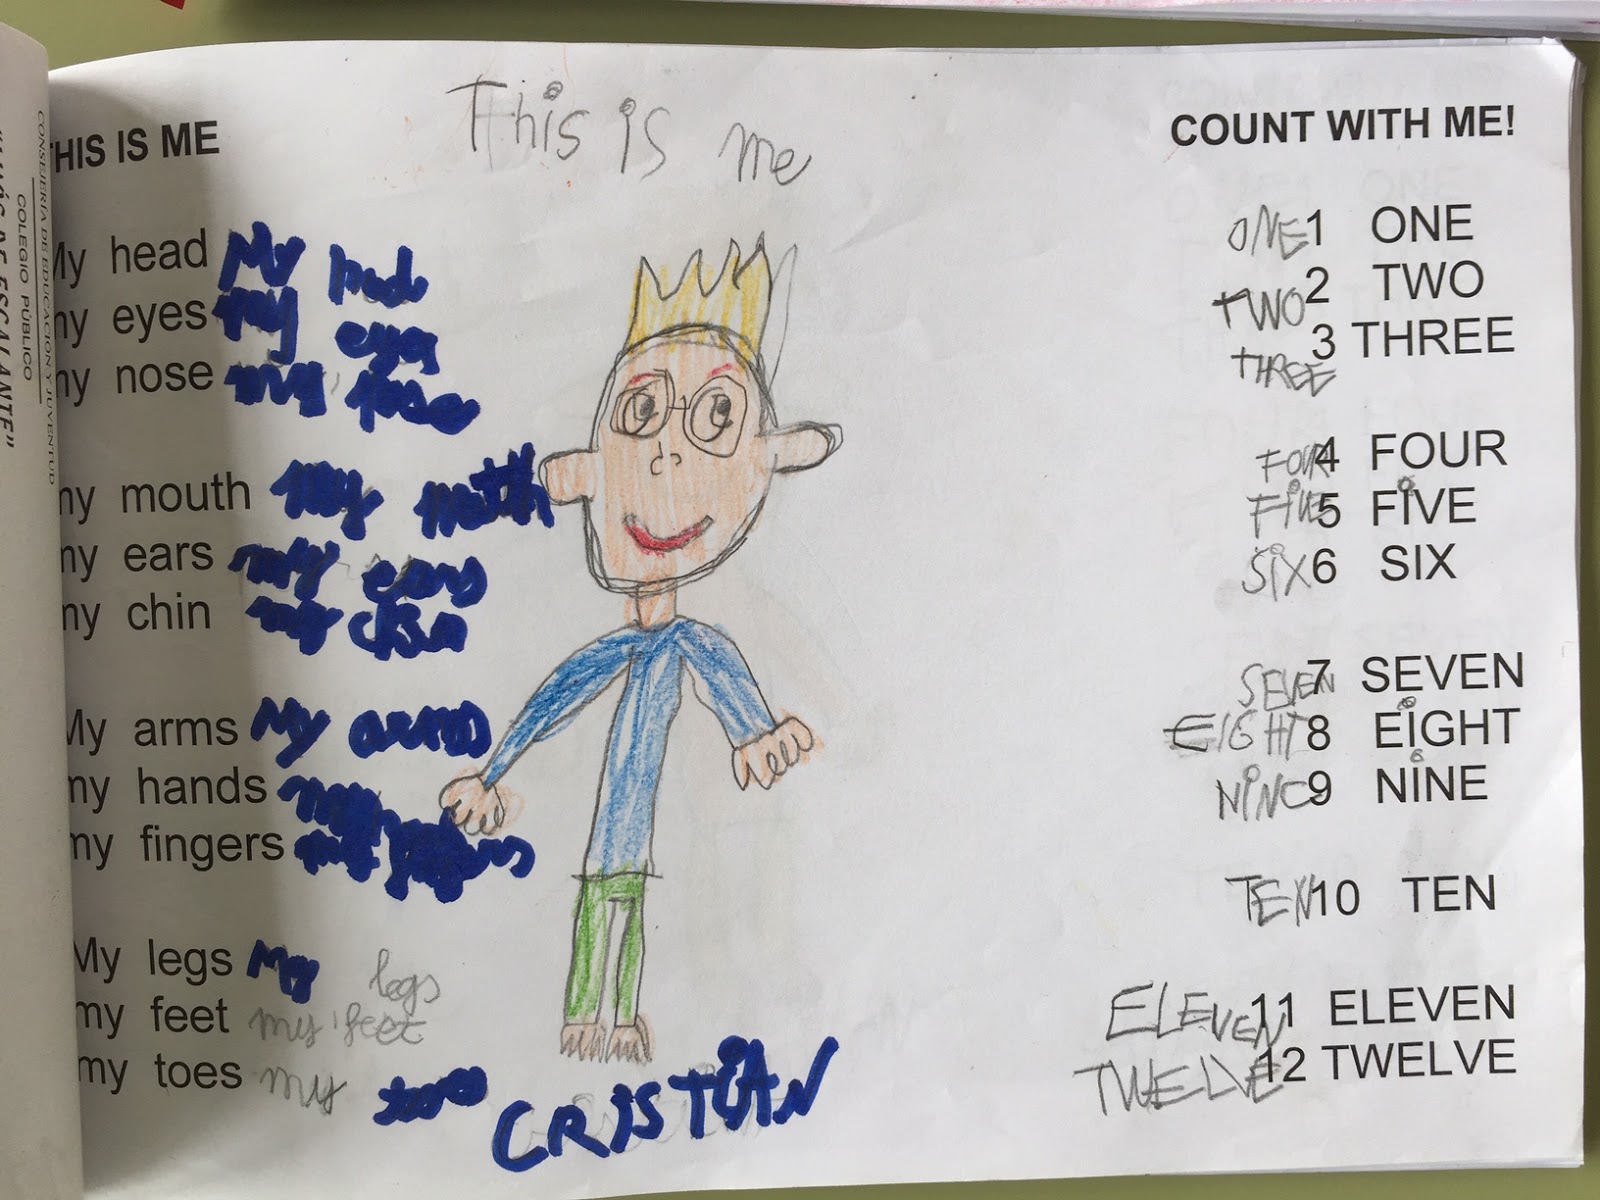 CONSEJERÍA DE EDUCACIÓN Y JUVENTUD
COLEGIO PÚBLICO
DE ESCALANTE"
This is me
THIS IS ME
My head My head
my eyes my eyes
my nose my nose
my mouth my mouth
my ears my ears
my chin my chin
My arms My arms
my hands my
my fingers my fingers
My legs My legs
my feet my feet
my toes my toes
CRISTIAN
COUNT WITH ME!
ONE 1 ONE
TWO 2 TWO
THREE 3 THREE
FOUR 4 FOUR
FIVE 5 FIVE
SIX 6 SIX
SEVEN 7 SEVEN
EIGHT 8 EIGHT
NINE 9 NINE
TEN 10 TEN
ELEVEN 11 ELEVEN
TWELVE 12 TWELVE